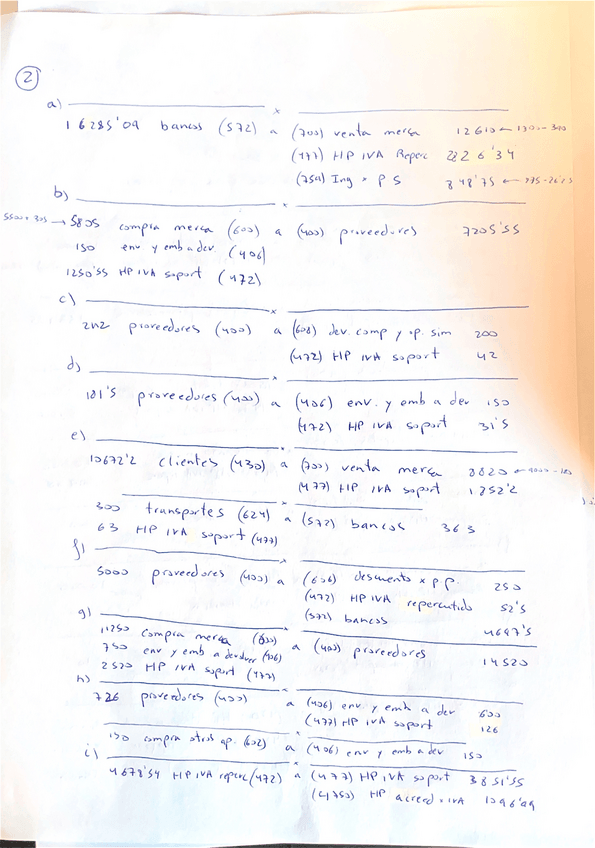 2
a)
16285'09 bancos (572) a (700) venta merca 12610 ← 1300-390
(477) HP IVA Reperc 2226'34
(759) Ing x P S 848'75 ← 875-26'25
b)
5500+305 → 5805 compra merca (600) a (400) proveedores 7205'55
150 env y emb a dev. (406)
1250'55 HP IVA soport (472)
c)
242 proveedores (400) a (608) dev comp y op. sim 200
(472) HP IVA soport 42
d)
181'5 proveedores (400) a (406) env. y emb a dev 150
(472) HP IVA soport 31'5
e)
10672'2 clientes (430) a (700) venta merca 8820 ← 9000-180
(477) HP IVA soport 1852'2
300 transportes (624) a (572) bancos 363
63 HP IVA soport (477)
f)
5000 proveedores (400) a (606) descuento x p.p. 250
(472) HP IVA repercutido 52'5
(572) bancos 4697'5
g)
11250 compra merca (600) a (400) proveedores 14520
750 env y emb a devolver (406)
2520 HP IVA soport (477)
h)
726 proveedores (400) a (406) env. y emb a dev 600
(477) HP IVA soport 126
150 compra otros ap. (602) a (406) env y emb a dev 150
i)
4678'54 HP IVA reperc (472) a (477) HP IVA soport 3851'55
(4750) HP acreed x IVA 1096'99